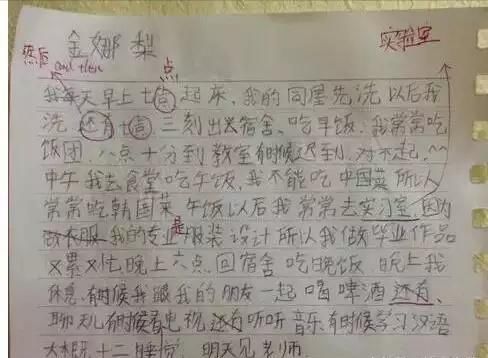 金娜梨
实验室
然后 and then 点
我每天早上七问起来,我的同屋先洗以后我
洗 还有七问 三刻出去宿舍、吃早饭。我常常吃
饭团、八点十分到教室有时候迟到、对不起、^^
中午 我去食堂吃午饭,我不能吃 中国菜 所以
常常吃韩国菜 午饭以后我 常常去实习室 因为
做衣服 我的专业是服装设计所以我做毕业作品
又累又忙晚上六点 回宿舍 吃晚饭 晚上我
休息 有时候我跟我的朋友一起喝啤酒 还有、
聊天儿有时候看电视 还有听听音乐有时候学习汉语
大概十二睡觉 明天见老师